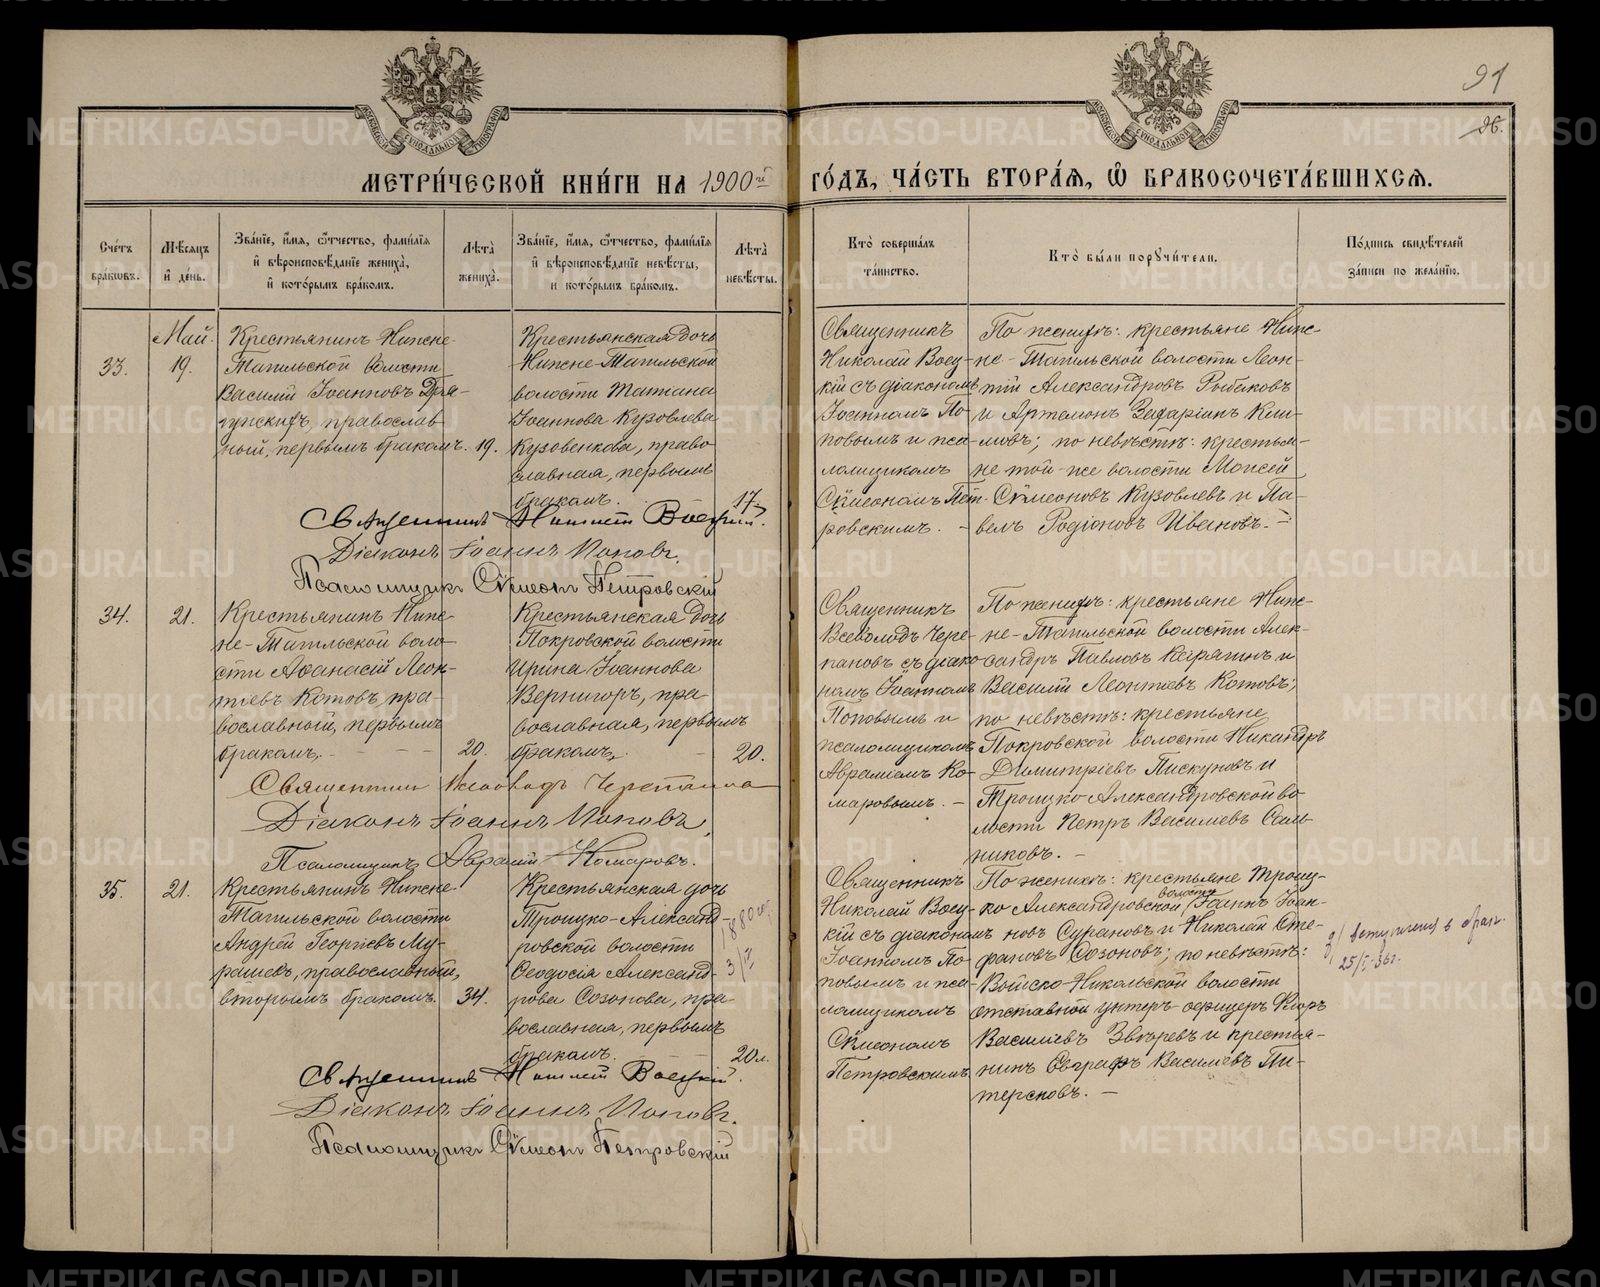 91
26.
МЕТРИ́ЧЕСКОЙ КНИ́ГИ НА 1900й ГО́ДЪ, ЧА́СТЬ ВТОРА́Я, Ѽ БРАКОСОЧЕТА́ВШИХСЯ.
Сче́тъ бра́ковъ.
Мѣ́сяцъ и҆ де́нь.
Зва́нїе, и҆́мя, ѻ҆́тчество, фами́лїя и҆ вѣроисповѣ́данїе жениха̀, и҆ кото́рымъ бра́комъ.
Лѣ́та̀ жениха̀.
Зва́нїе, и҆́мя, ѻ҆́тчество, фами́лїя и҆ вѣроисповѣ́данїе невѣ́сты, и кото́рымъ бра́комъ.
Лѣ́та̀ невѣ́сты.
Кто̀ соверша́лъ та́инство.
Кто̀ бы́ли порꙋчи́тели.
По́дпись свидѣ́телей за́писи по жела́нїю.
33.
Май.
19.
Крестьянинъ Нижне-
Тагильской волости
Василій Іоанновъ Дра-
гунскихъ, православ-
ный, первымъ бракомъ.
19.
Крестьянская дочь
Нижне-Тагильской
волости Татiана
Іоаннова Кузовлева
Кузовенкова, право-
славная, первымъ
бракомъ.
17.
Священникъ
Николай Воец-
кій съ діакономъ
Іоанномъ По-
повымъ и пса-
ломщикомъ
Сѵмеономъ Пет-
ровскимъ. –
По женихѣ: крестьяне Ниж-
не-Тагильской волости Леон-
тій Александровъ Рыбаковъ
и Артемонъ Захаріинъ Кли-
мовъ; по невѣстѣ: крестья-
не той-же волости Моисей
Сѵмеоновъ Кузовлевъ и Па-
велъ Родіоновъ Ивановъ. –
Священникъ Николай Воецкій.
Діаконъ Іоаннъ Поповъ.
Псаломщикъ Сѵмеонъ Петровскій
34.
21.
Крестьянинъ Ниж-
не-Тагильской воло-
сти Аѳанасій Леон-
тіевъ Котовъ, пра-
вославный, первымъ
бракомъ. –
20.
Крестьянская дочь
Покровской волости
Ирина Іоаннова
Вернигоръ, пра-
вославная, первымъ
бракомъ.
20.
Священникъ
Всеволодъ Чере-
пановъ съ діако-
номъ Іоанномъ
Поповымъ и
псаломщикомъ
Авраміемъ Ко-
маровымъ. –
По женихѣ: крестьяне Ниж-
не-Тагильской волости Алек-
сандръ Павловъ Карягинъ и
Василій Леонтіевъ Котовъ;
по невѣстѣ: крестьяне
Покровской волости Никандръ
Димитріевъ Пискуновъ и
Троицко Александровской во-
лости Петръ Василіевъ Саль-
никовъ. –
Священникъ Всеволодъ Черепановъ
Діаконъ Іоаннъ Поповъ.
Псаломщикъ Аврамій Комаровъ.
35.
21.
Крестьянинъ Нижне-
Тагильской волости
Андрей Георгіевъ Му-
рашевъ, православный,
вторымъ бракомъ.
34.
Крестьянская дочь
Троицко-Александ-
ровской волости
Ѳеодосія Александ-
рова Созонова, пра-
вославная, первымъ
бракомъ.
20 л.
1880 г.
3/IV
Священникъ
Николай Воец-
кій съ діакономъ
Іоанномъ По-
повымъ и пса-
ломщикомъ
Сѵмеономъ
Петровскимъ.
По женихѣ: крестьяне Троиц-
ко Александровской волости Іоаннъ Іоан-
новъ Сурановъ и Николай Сте-
фановъ Созоновъ; по невѣстѣ:
Войско-Никольской волости
отставной унтеръ-офицеръ Киръ
Василіевъ Звѣревъ и крестья-
нинъ Евграфъ Василіевъ Пи-
терсковъ. –
вступления в брак.
25/I-36г.
Священникъ Николай Воецкій.
Діаконъ Іоаннъ Поповъ.
Псаломщикъ Сѵмеонъ Петровскій
METRIKI.GASO-URAL.RU